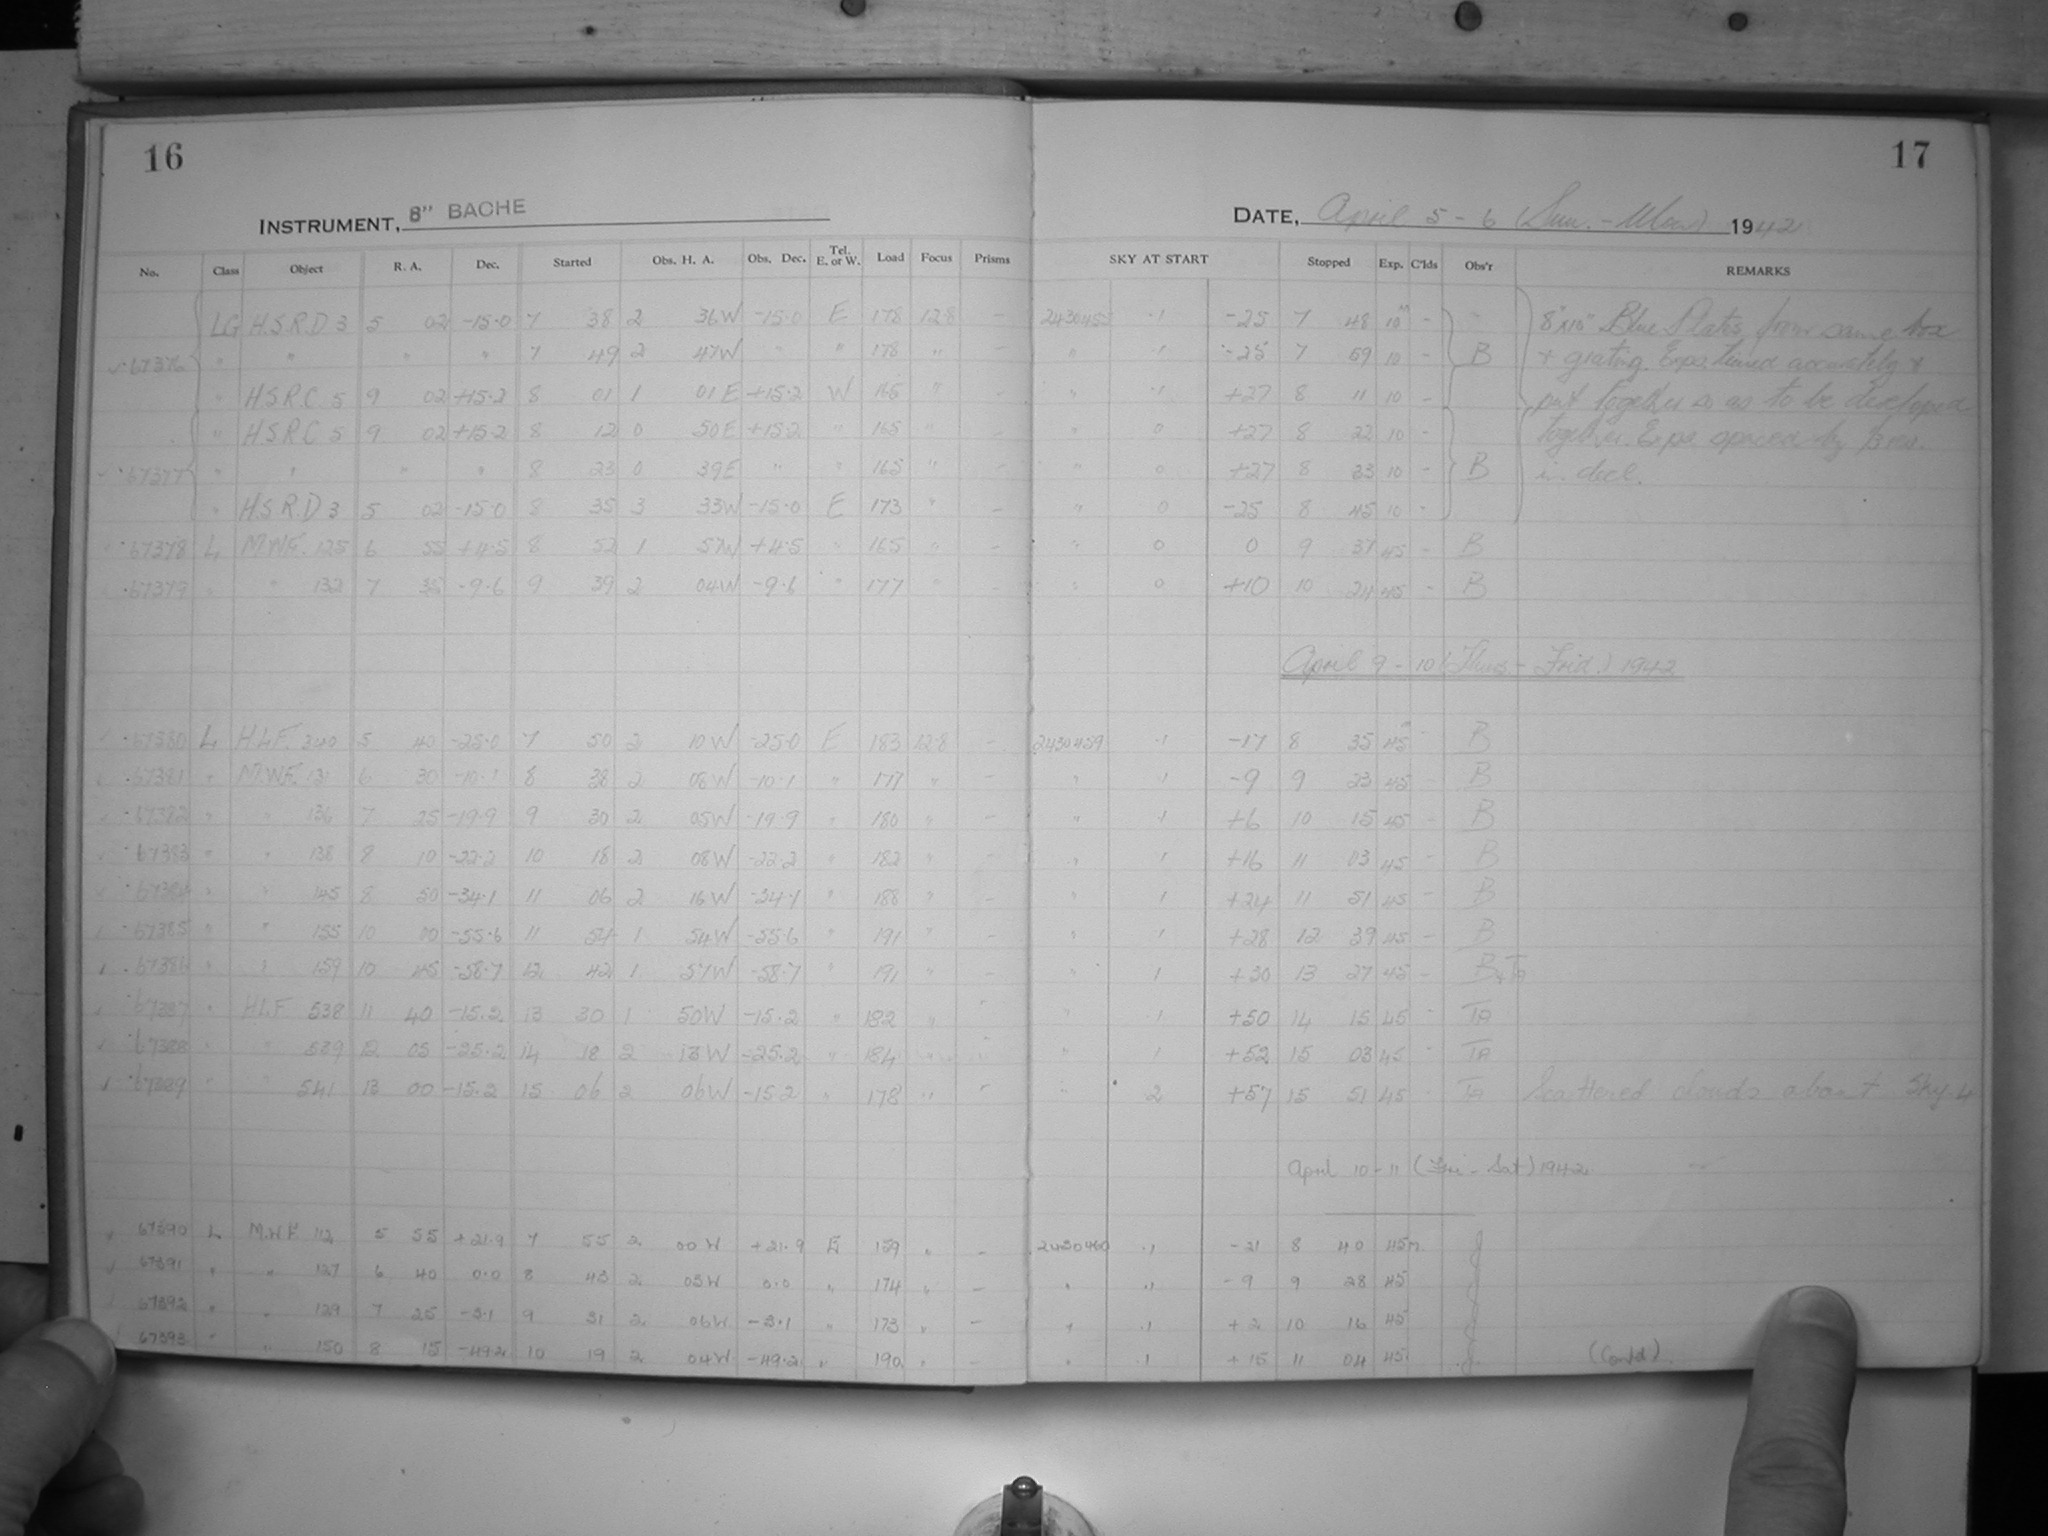 16
17
INSTRUMENT, 8" BACHE
DATE, April 5 - 6 (Sun. - Mon.) 1942
No. Class Object R. A. Dec. Started Obs. H. A. Obs. Dec. Tel. E. or W. Load Focus Prisms SKY AT START Stopped Exp. C'lds Obs'r REMARKS
LG H.S.R.D 3 5 02 -15.0 7 38 2 36W -15.0 E 178 12.8 - 2430455 .1 -25 7 48 10m - " 8"x10" Blue Plates from same box
67376 " " " " 7 49 2 47W " " 178 " - " .1 -25 7 59 10 - B + grating. Exps. timed accurately +
" H.S.R.C 5 9 02 +15.2 8 01 1 01E +15.2 W 165 " - " .1 +27 8 11 10 - put together so as to be developed
" H.S.R.C 5 9 02 +15.2 8 12 0 50E +15.2 " 165 " - " 0 +27 8 22 10 - together. Exps spaced by
67377 " " " " 8 23 0 39E " " 165 " - " 0 +27 8 33 10 - B in decl.
" H.S.R.D 3 5 02 -15.0 8 35 3 33W -15.0 E 173 " - " 0 -25 8 45 10 -
67378 L M.W.F. 125 6 55 +4.5 8 52 1 57W +4.5 " 165 " - " 0 0 9 37 45 - B
67379 " " 132 7 35 -9.6 9 39 2 04W -9.6 " 177 " - " 0 +10 10 24 45 - B
April 9 - 10 (Thurs - Frid.) 1942
67380 L H.L.F. 340 5 40 -25.0 7 50 2 10W -25.0 E 183 12.8 - 2430459 .1 -17 8 35 45m - B
67381 " M.W.F. 131 6 30 -10.1 8 38 2 08W -10.1 " 177 " - " .1 -9 9 23 45 - B
67382 " " 136 7 25 -19.9 9 30 2 05W -19.9 " 180 " - " .1 +6 10 15 45 - B
67383 " " 138 8 10 -22.2 10 18 2 08W -22.2 " 182 " - " 1 +16 11 03 45 - B
67384 " " 145 8 50 -34.1 11 06 2 16W -34.1 " 188 " - " 1 +24 11 51 45 - B
67385 " " 155 10 00 -55.6 11 54 1 54W -55.6 " 191 " - " 1 +28 12 39 45 - B
67386 " " 159 10 45 -58.7 12 42 1 57W -58.7 " 191 " - " 1 +30 13 27 45 - B+Ta
67387 " H.L.F 538 11 40 -15.2 13 30 1 50W -15.2 " 182 " " " 1 +50 14 15 45 - Ta
67388 " " 539 12 05 -25.2 14 18 2 13W -25.2 " 184 " " " 1 +52 15 03 45 - Ta
67389 " " 541 13 00 -15.2 15 06 2 06W -15.2 " 178 " " " 2 +57 15 51 45 - Ta Scattered clouds about Sky 4
April 10 - 11 (Fri - Sat) 1942
67390 L M.W.F. 112 5 55 +21.9 7 55 2 00W +21.9 E 159 " - 2430460 .1 -21 8 40 45m J
67391 " " 127 6 40 0.0 8 43 2 03W 0.0 " 174 " - " .1 -9 9 28 45 J
67392 " " 129 7 25 -3.1 9 31 2 06W -3.1 " 173 " - " .1 +2 10 16 45 J
67393 " " 150 8 15 -49.2 10 19 2 04W -49.2 " 190 " - " .1 +15 11 04 45 J (Contd).